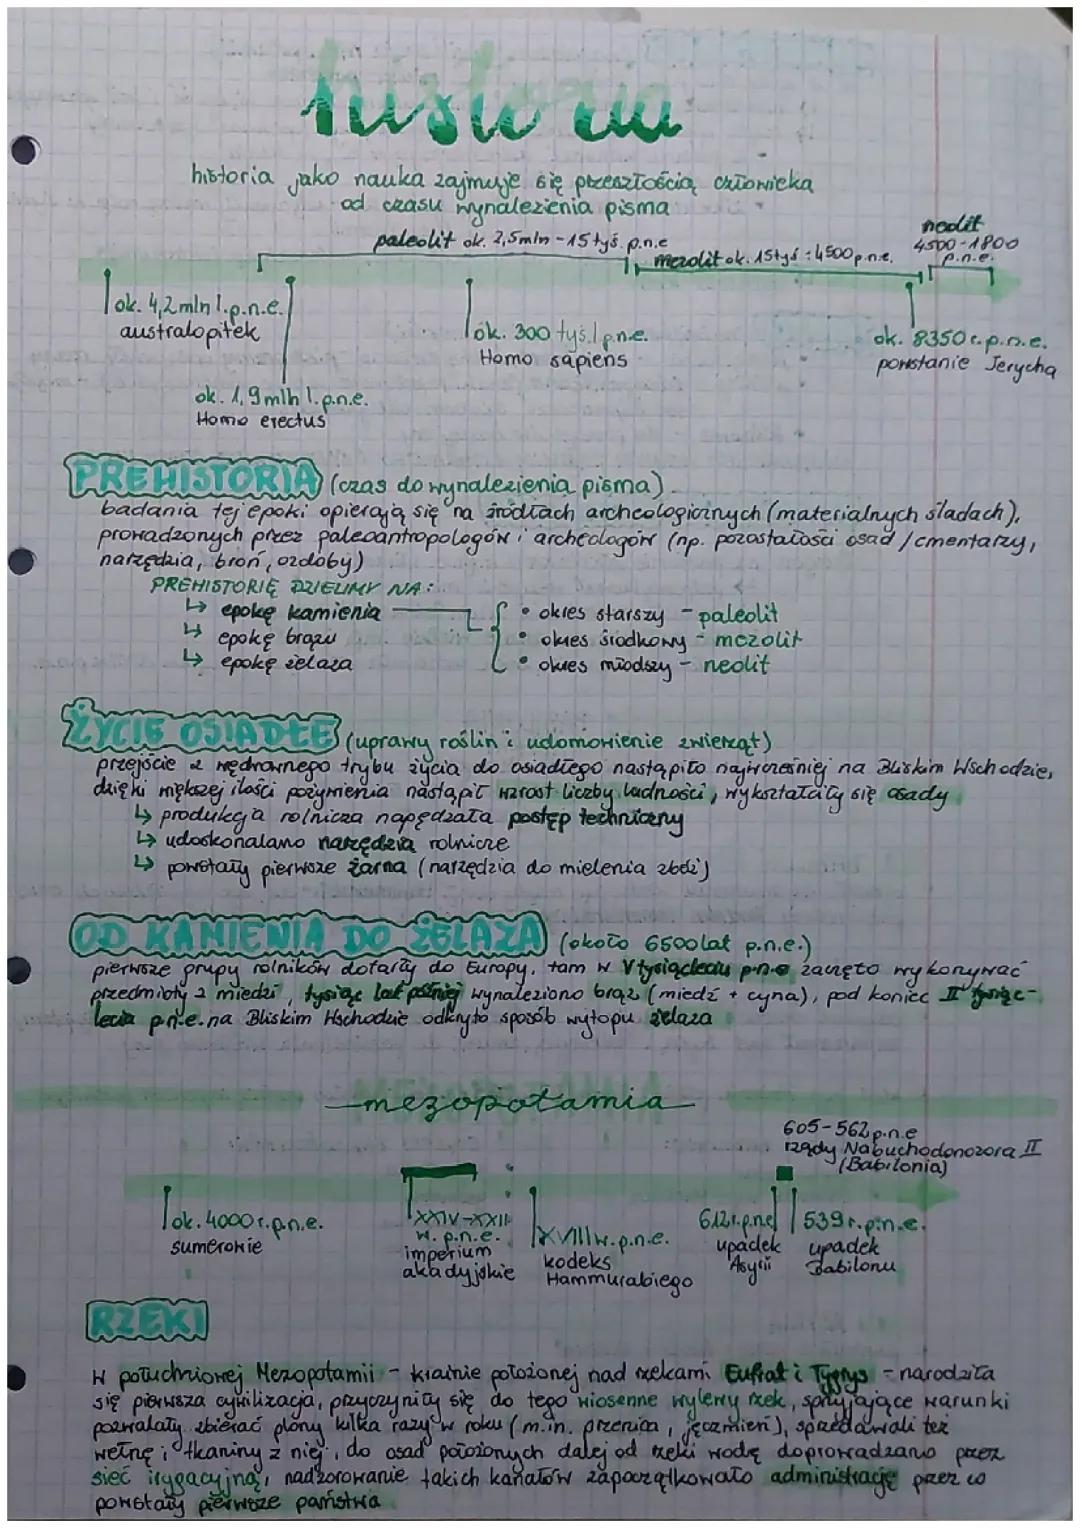 historia
historia jako nauka zajmuje się przeszłością człowieka
od czasu wynalezienia pisma
paleolit ok. 2,5mln - 15 tyś. p.n.e
mezolit ok. 15tyś - 4500 p.n.e.
neolit
4500-1800
p.n.e.
ok. 4,2mln l.p.n.e.
australopitek
ok. 1,9mln l.p.n.e.
Homo erectus
ok. 300 tyś.l p.n.e.
Homo sapiens
ok. 8350 r.p.n.e.
powstanie Jerycha
PREHISTORIA (czas do wynalezienia pisma)
badania tej epoki opierają się na źródłach archeologicznych (materialnych śladach),
prowadzonych przez paleoantropologów i archeologów (np. pozostałości osad / cmentarzy,
narzędzia, broń, ozdoby)
PREHISTORIĘ DZIELIMY NA:
↳ epokę kamienia
↳ epokę brązu
↳ epokę żelaza
• okres starszy - paleolit
• okres środkowy - mezolit
• okres młodszy - neolit
ŻYCIE OSIADŁE (uprawy roślin i udomowienie zwierząt)
przejście z wędrownego trybu życia do osiadłego nastąpiło najwcześniej na Bliskim Wschodzie,
dzięki większej ilości pożywienia nastąpił wzrost liczby ludności, wykształciły się osady
↳ produkcja rolnicza napędzała postęp techniczny
↳ udoskonalano narzędzia rolnicze
↳ powstały pierwsze żarna (narzędzia do mielenia zbóż)
OD KAMIENIA DO ŻELAZA (około 6500lat p.n.e.)
pierwsze grupy rolników dotarły do Europy, tam w V tysiącleciu p.n.e zaczęto wykonywać
przedmioty z miedzi, tysiąc lat później wynaleziono brąz (miedź + cyna), pod koniec II tysiąc-
lecia p.n.e. na Bliskim Wschodzie odkryto sposób wytopu żelaza
mezopotamia
605-562 p.n.e
rządy Nabuchodonozora II
(Babilonia)
ok. 4000 r.p.n.e.
sumerowie
XXIV-XXII
w. p.n.e.
imperium
akadyjskie
XVIII w. p.n.e.
kodeks
Hammurabiego
612r.p.n.e
upadek
Asyrii
539 r.p.n.e.
upadek
Babilonu
RZEKI
W południowej Mezopotamii - krainie położonej nad rzekami Eufrat i Tygrys - narodziła
się pierwsza cywilizacja, przyczyniły się do tego wiosenne wylewy rzek, sprzyjające warunki
pozwalały zbierać plony kilka razy w roku (m.in. pszenica, jęczmień), sprzedawali też
wełnę i tkaniny z niej, do osad położonych dalej od rzeki wodę doprowadzano przez
sieć irygacyjną, nadzorowanie takich kanałów zapoczątkowało administrację przez co
powstały pierwsze państwa